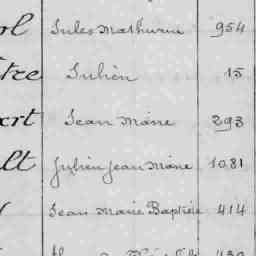 Jules Mathurin 954
Julien 15
Jean Marie 293
Julien Jean Marie 1081
Jean Marie Baptiste 414